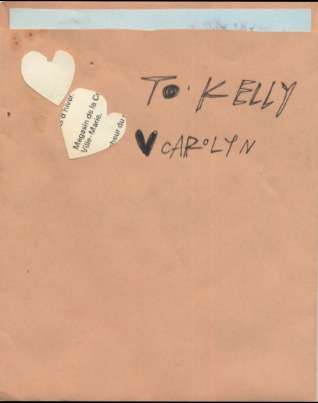 TO. KELLY
♥ CAROLYN
d'hiver.
Magasin de la C
Ville-Marie.
cheur du